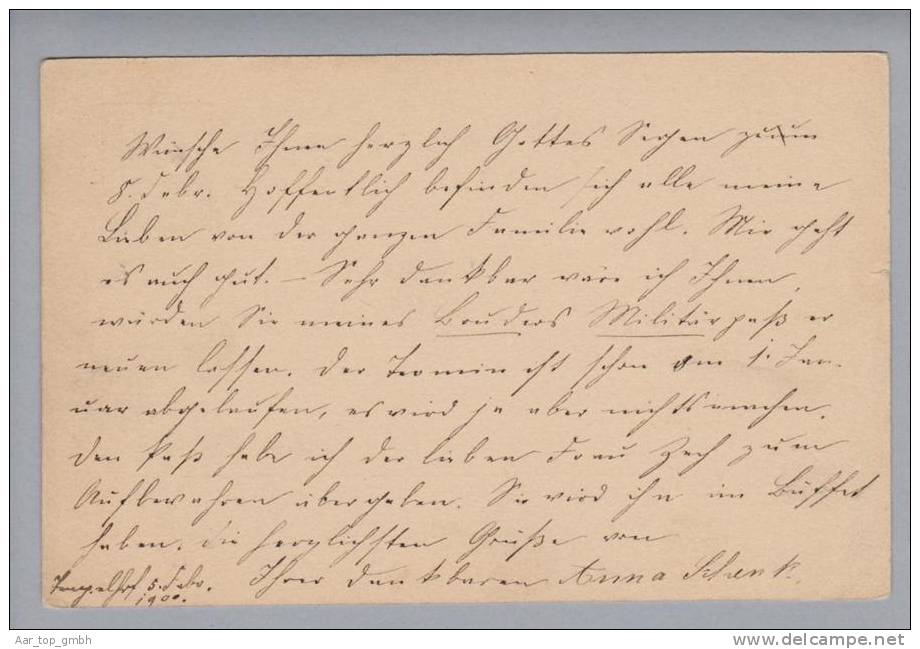 Wünsche Ihnen herzlich Gottes Segen zum
8. Febr. Hoffentlich befinden sich alle meine
Lieben von der ganzen Familie wohl. Mir geht
es auch gut. – Sehr dankbar wäre ich Ihnen,
würden Sie meines Bruders Militärpaß er
neuen lassen. Der Termin ist schon am 1. Jan-
uar abgelaufen, es wird ja aber nichts machen.
Den Paß habe ich der lieben Frau Zech zum
Aufbewahren übergeben. Sie wird ihn im Büffet
haben. Die herzlichsten Grüße von
Ihrer dankbaren Anna Schenk.
Tempelhof 5. Febr.
1900.
Aar_top_gmbh
www.delcampe.net